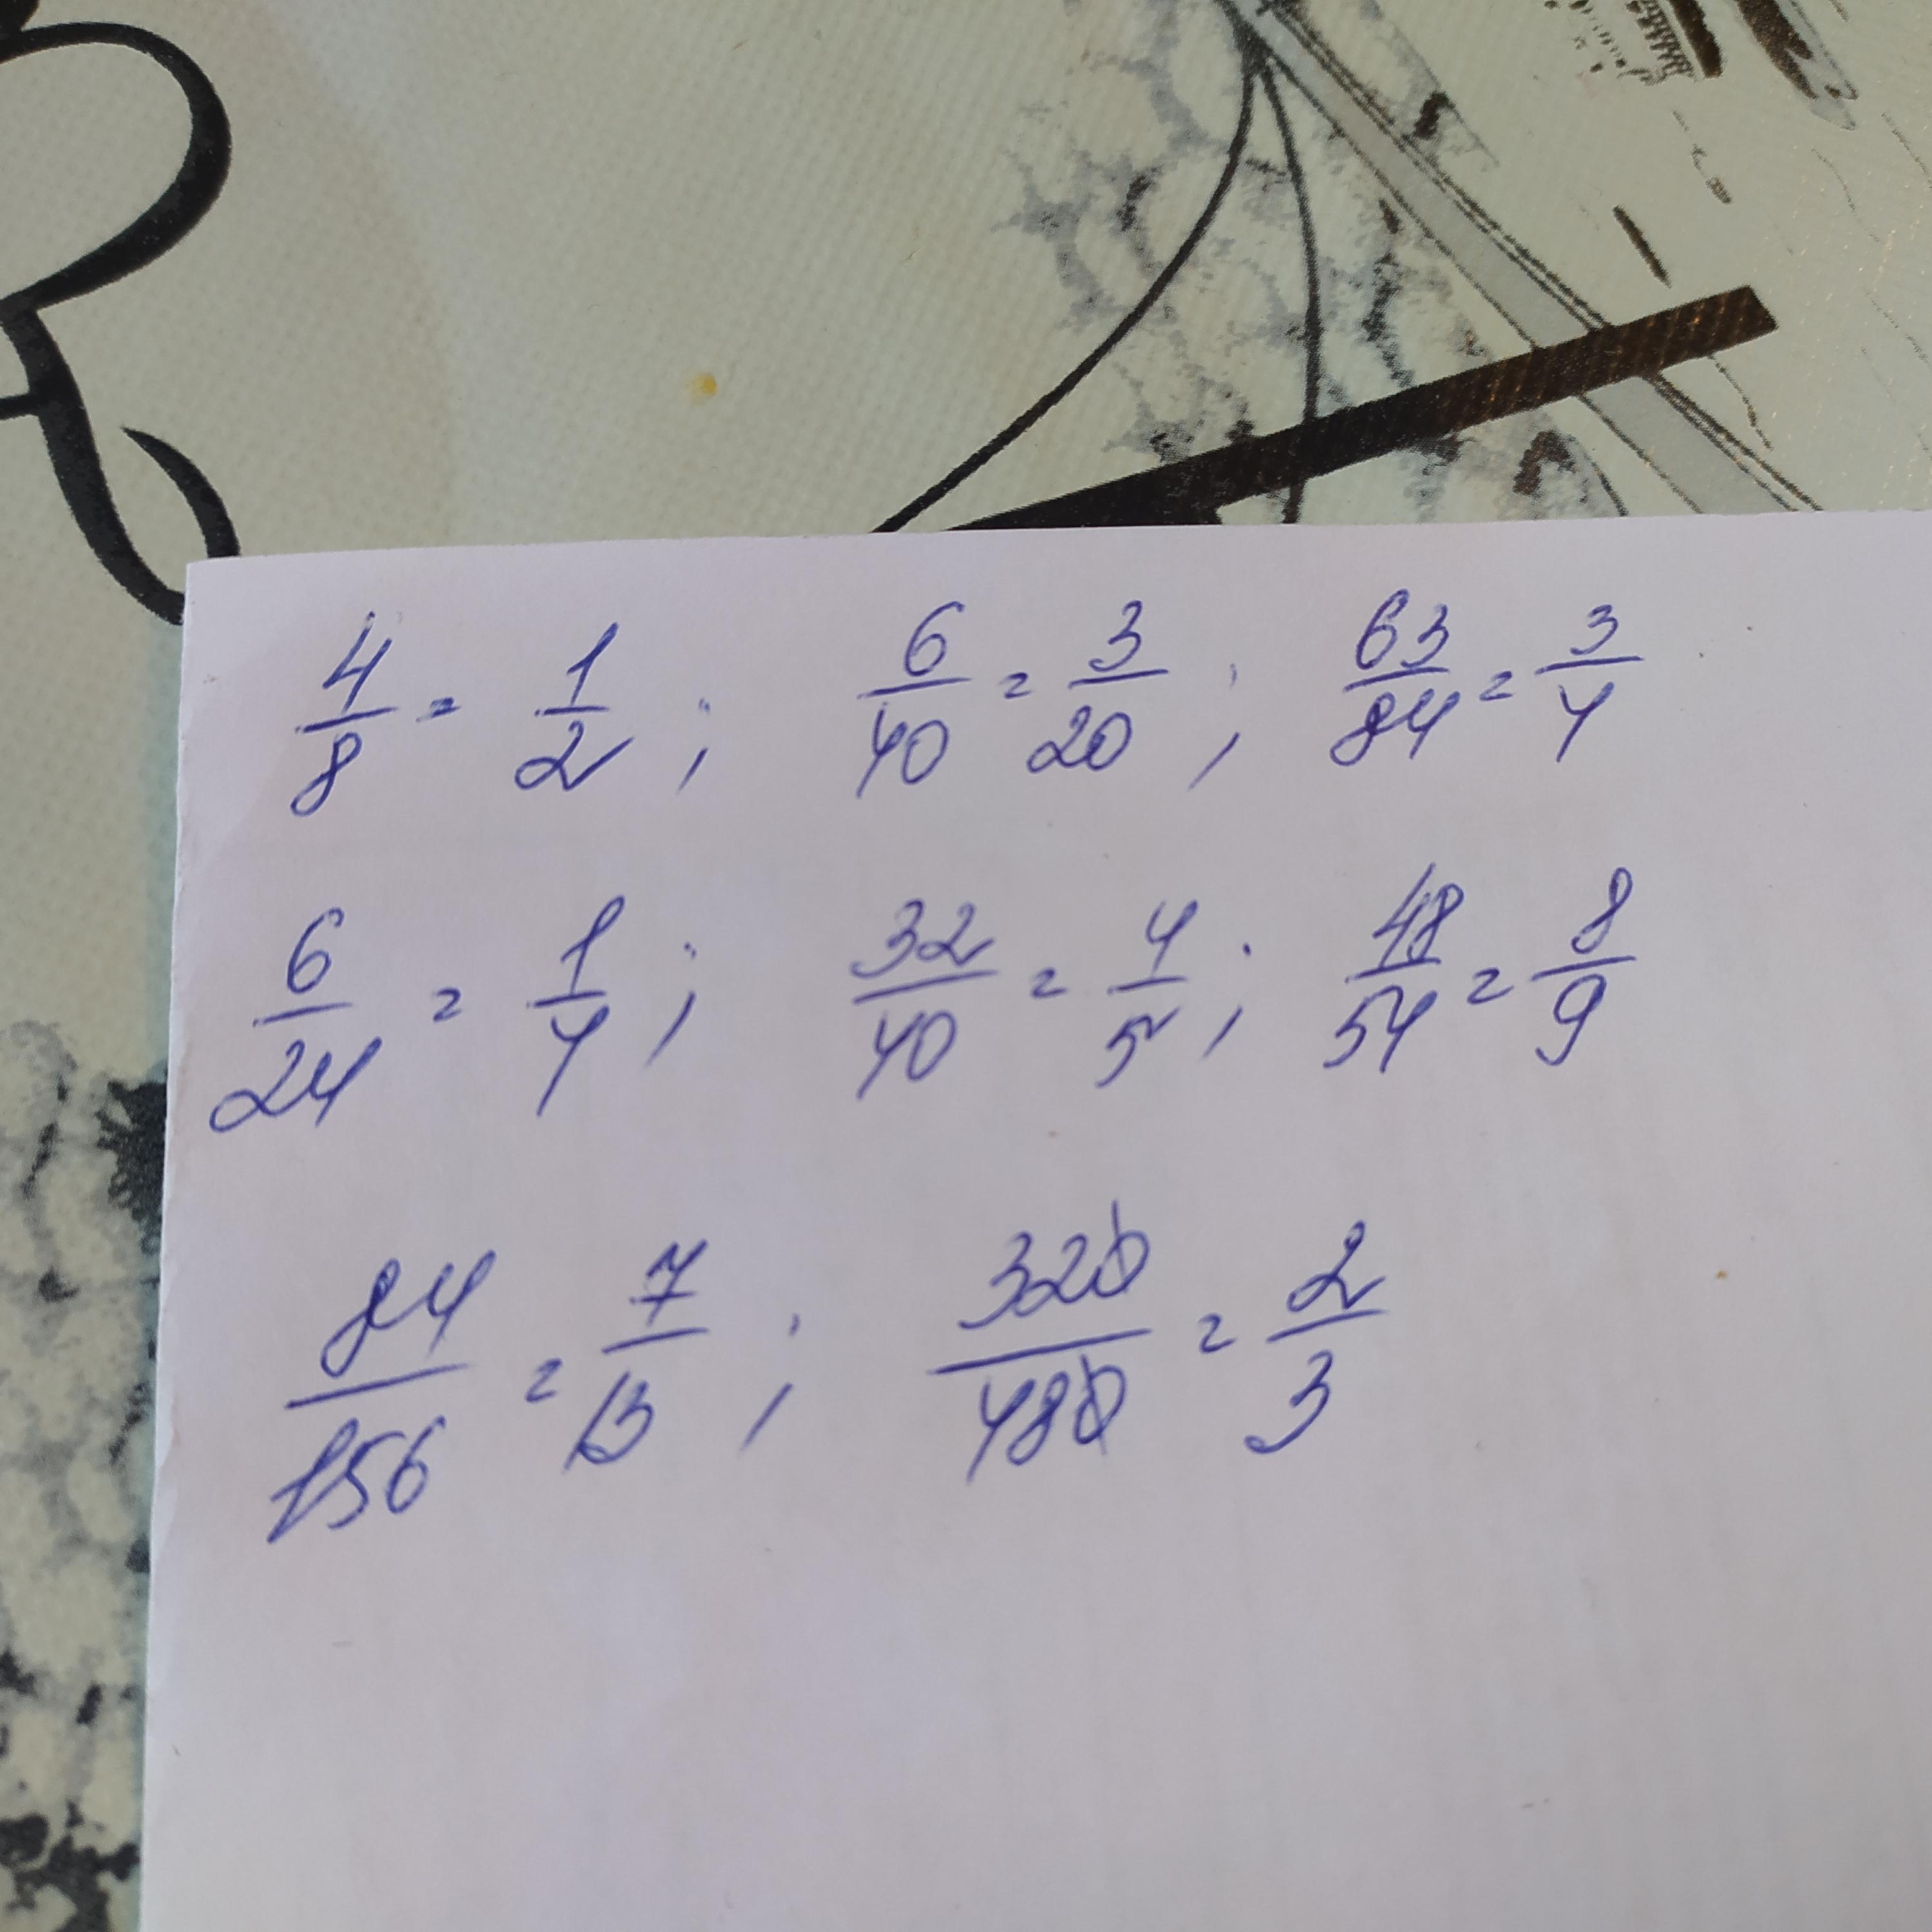 4/8 = 1/2 ; 6/40 = 3/20 ; 63/84 = 3/4
6/24 = 1/4 ; 32/40 = 4/5 ; 48/54 = 8/9
84/156 = 7/13 ; 320/480 = 2/3